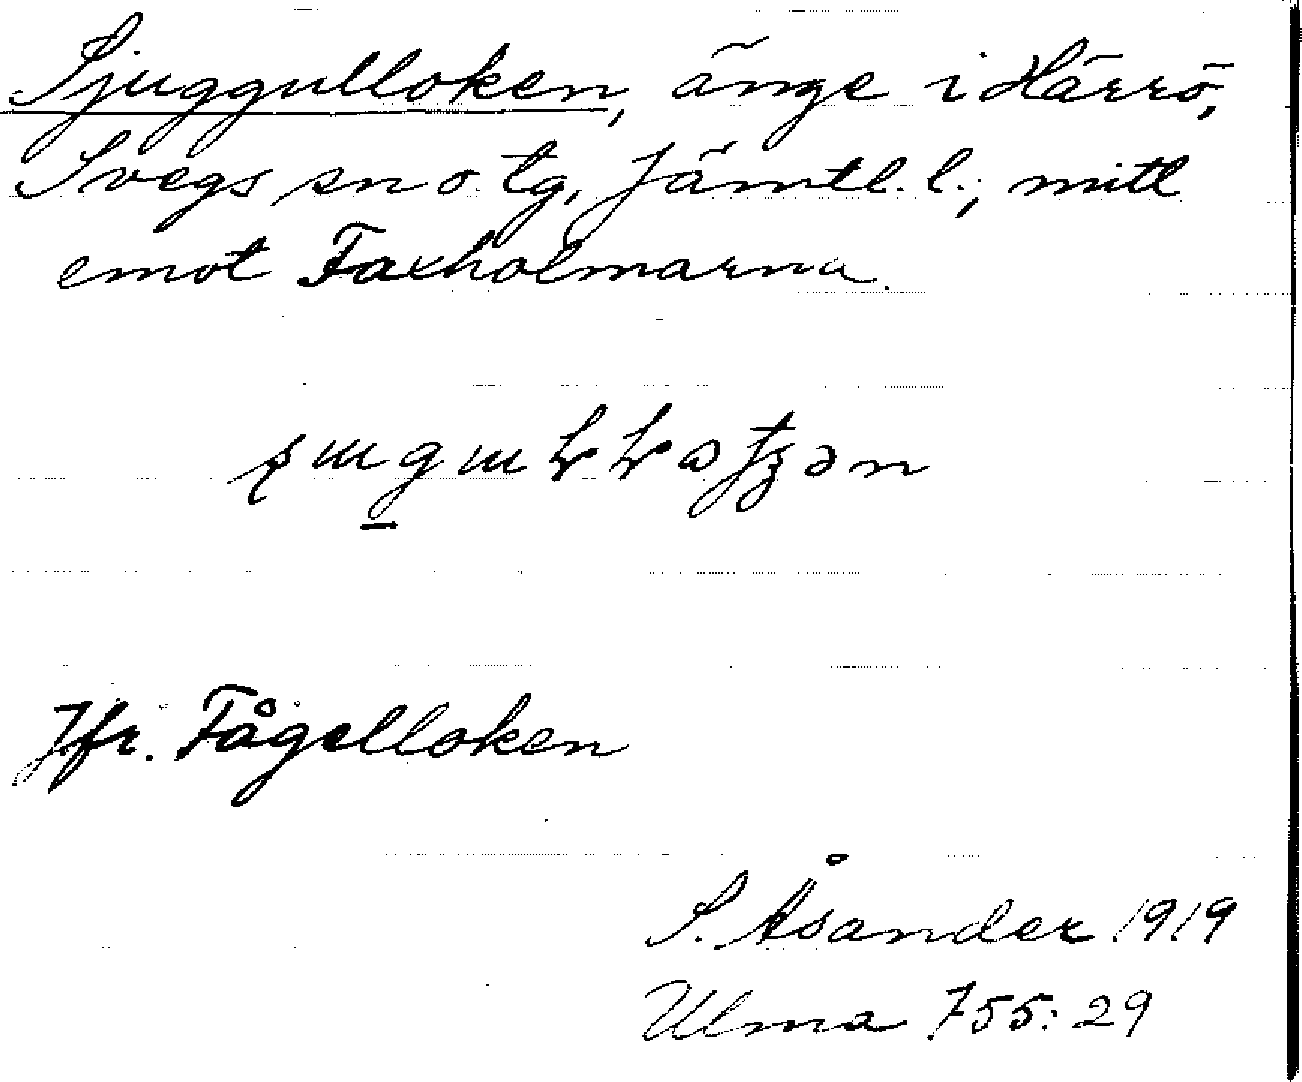 Sjuggulloken, änge i Härrö,
Svegs sn o. tg, Jämtl. l., mitt
emot Faxholmarna.
Jfr. Fågelloken
S. Åsander 1919
Ulma 755:29